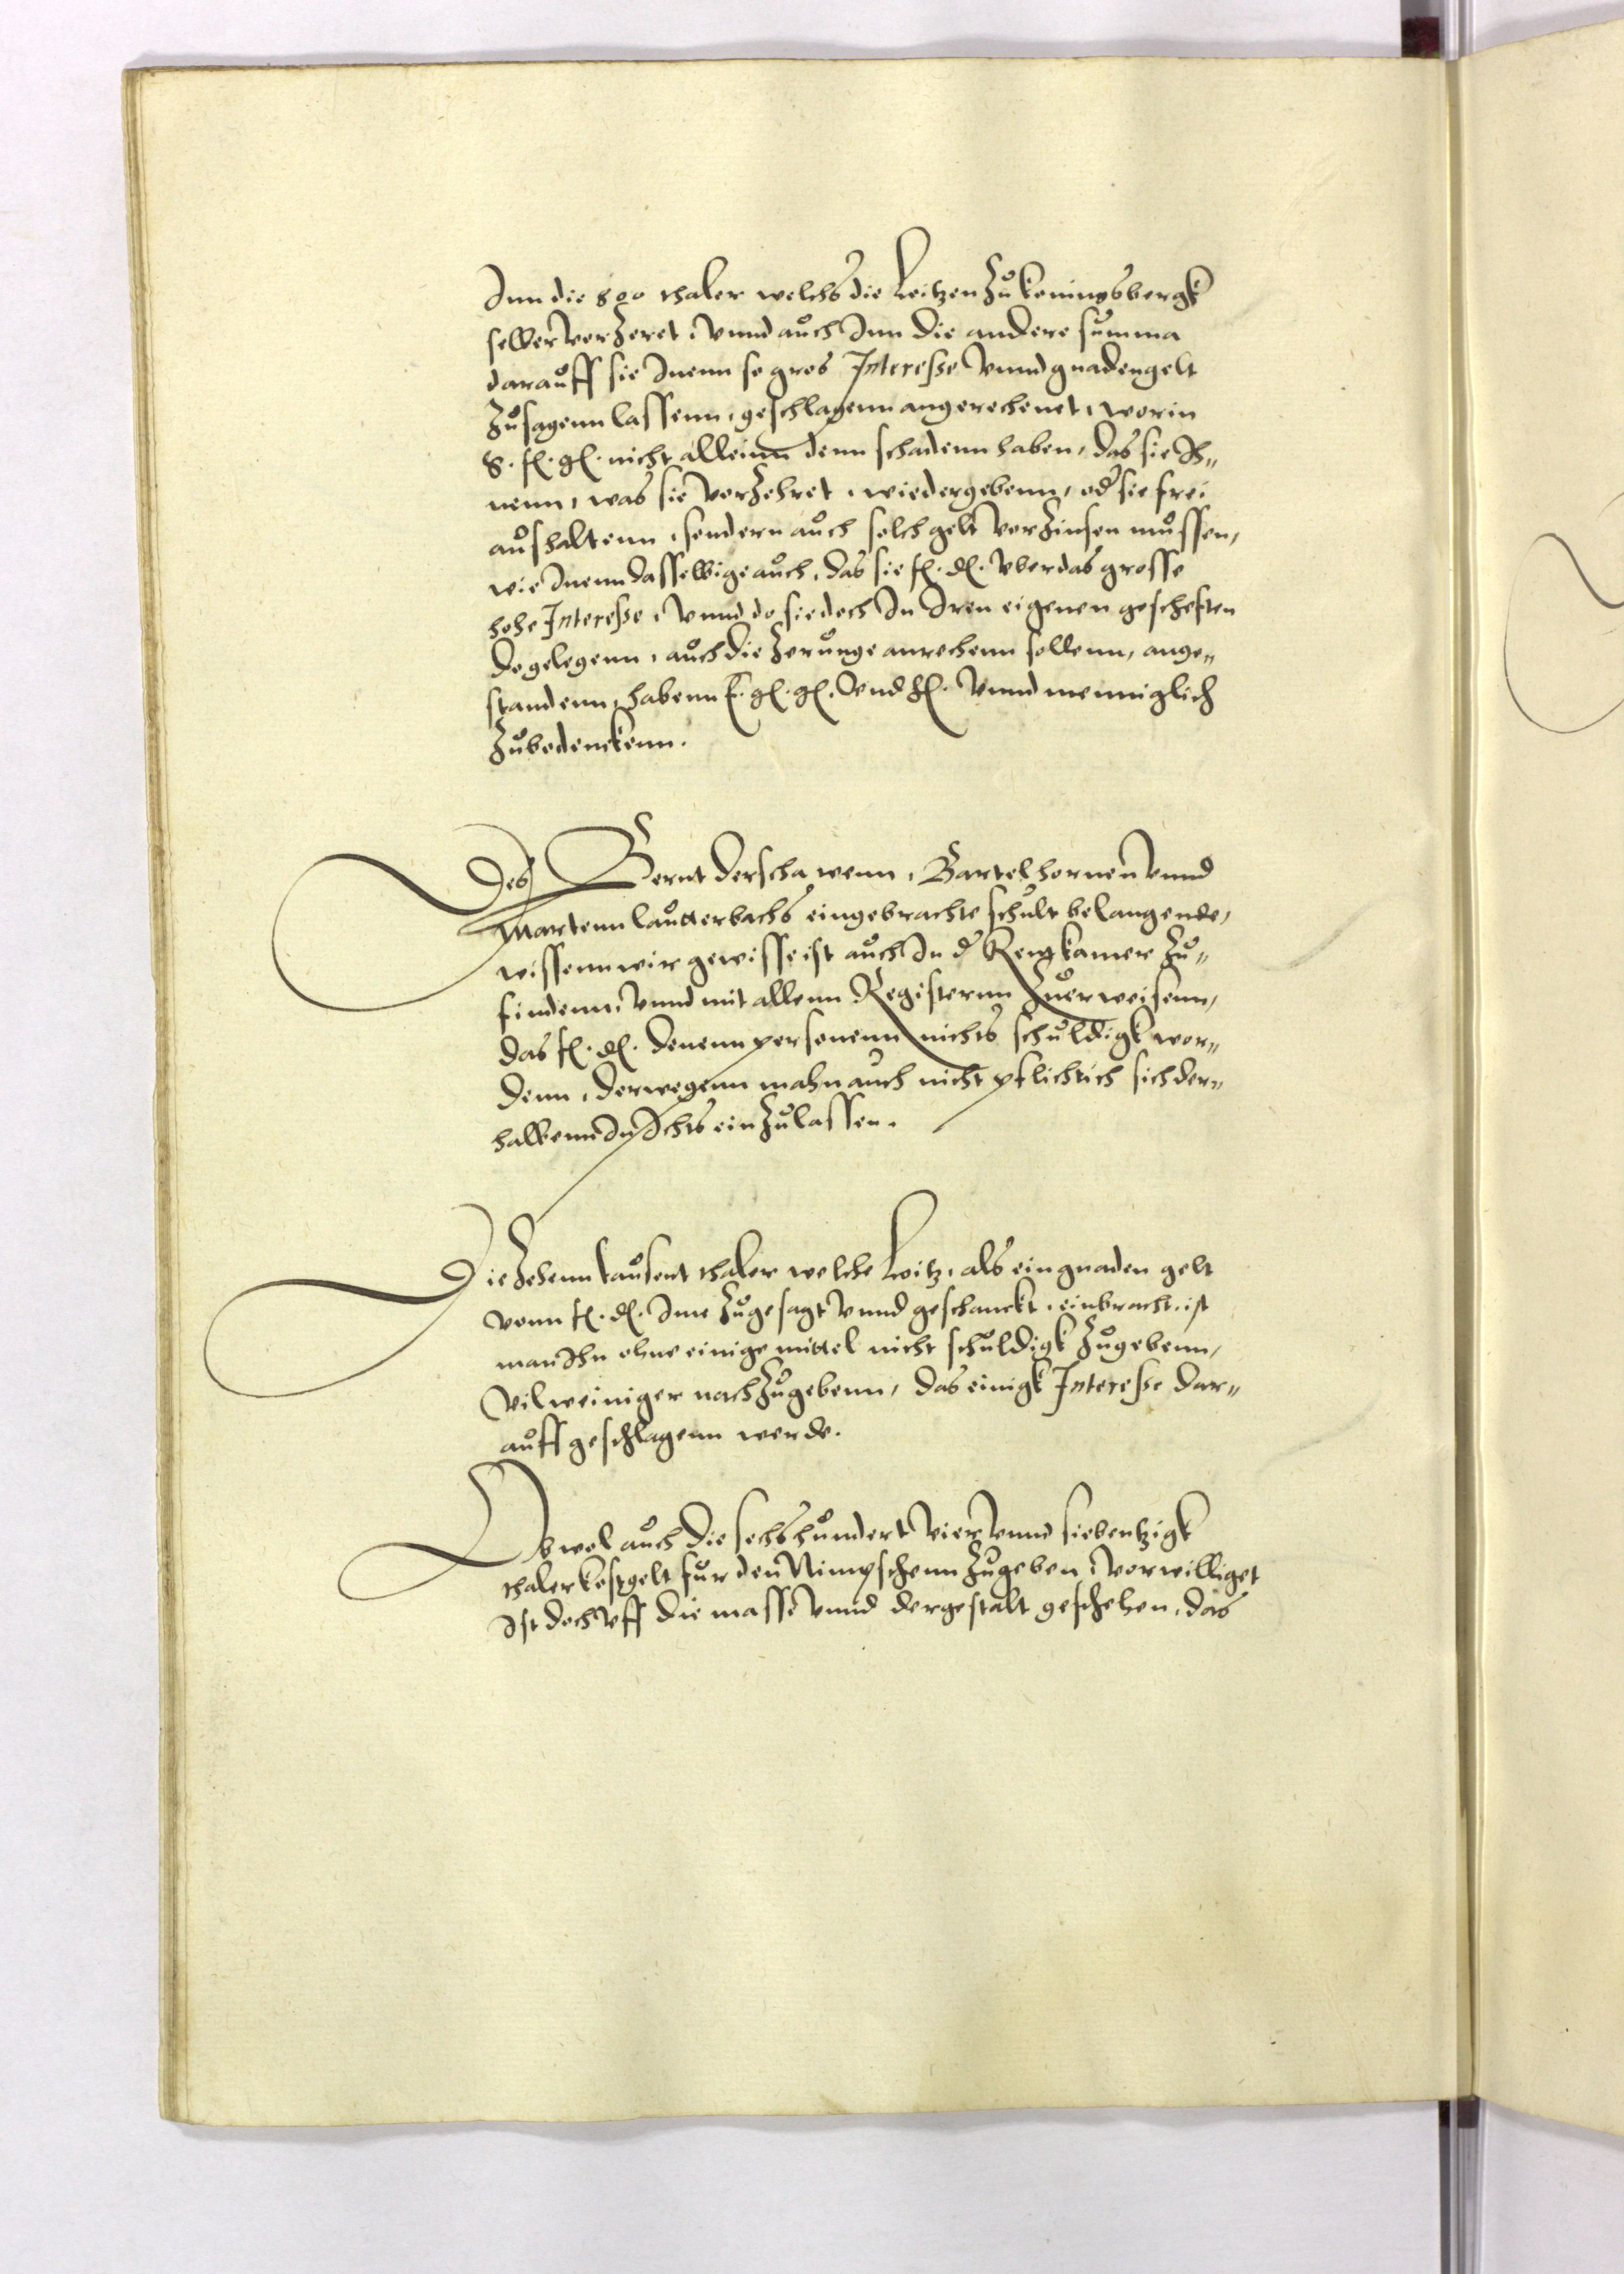 Inn die 800 thaler welchs die Loitzen zu koningsbergk
selber verzeret, vnnd auch Inn die andere summa
darauff sie Inenn so gros Interesse vnnd gnadengelt
zusagenn lassenn, geschlagenn angerechenet, worin
E. f. g. nicht alleinn denn schadenn haben, das sie Ih„
nenn, was sie verzehret, wiedergebenn, od sie frei
aushaltenn, sondern auch solch gelt verzinsen mussen,
wie Inenn dasselbige auch, das sie f. d. vber das grosse
hohe Interesse, vnnd do sie doch In Iren eigenen gescheften
do gelegenn, auch die zerunge anrechenn sollenn, ange„
standenn, habenn E. g. g. vnd h. vnnd menniglich
zubedenckenn.
Des Bernt derschawenn, Bartel hornen vnnd
Martenn lautterbachs eingebrachte schult belangende,
wissenn wir gewisse ist auch In d Rentkamer zu„
findenn, vnnd mit allenn Registernn zuerweisenn,
das f. d. denenn personenn nichts schuldigk wor„
denn, derwegenn mahn auch nicht pflichtich sich der„
halbenn In Ichts einzulassen.
Die zehenn tausent thaler welche Loitz, als ein gnaden gelt
vonn f. d. Ime zugesagt vnnd geschanckt, einbracht, ist
man Ihn ohne einige mittel nicht schuldigk zugebenn,
vil weiniger nachzugebenn, das einigk Interesse dar„
auff geschlagenn werde.
Obwol auch die sechshundert vier vnnd siebentzigk
thaler kostgelt fur den Nimpschenn zugeben, vorwilliget
Ist doch vff die masse vnnd dergestalt geschehen, das